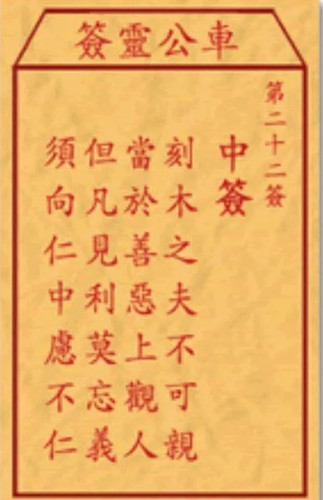 車公靈簽
第二十二簽
中簽
刻木之夫不可親
當於善惡上觀人
但凡見利莫忘義
須向仁中慮不仁